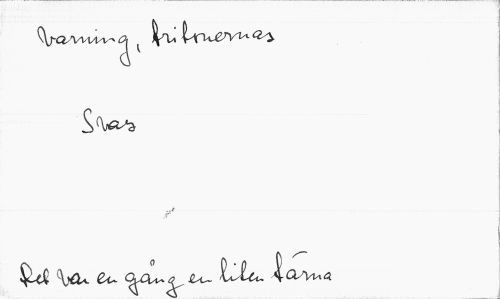 Varning, tritonernas
Svas
Det var en gång en liten tärna